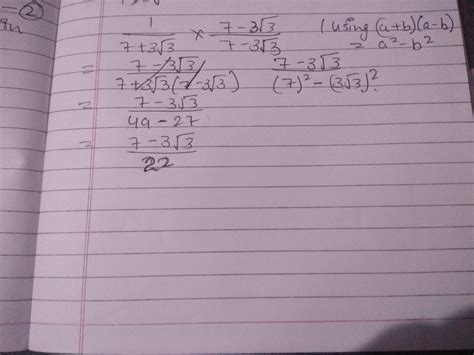 – ②
1/(7+3√3) × (7–3√3)/(7–3√3) (using (a+b)(a-b) = a²–b²
= (7–3√3)/(7+3√3(7–3√3) (7–3√3)/((7)²–(3√3)²
= (7–3√3)/(49–27)
= (7–3√3)/22